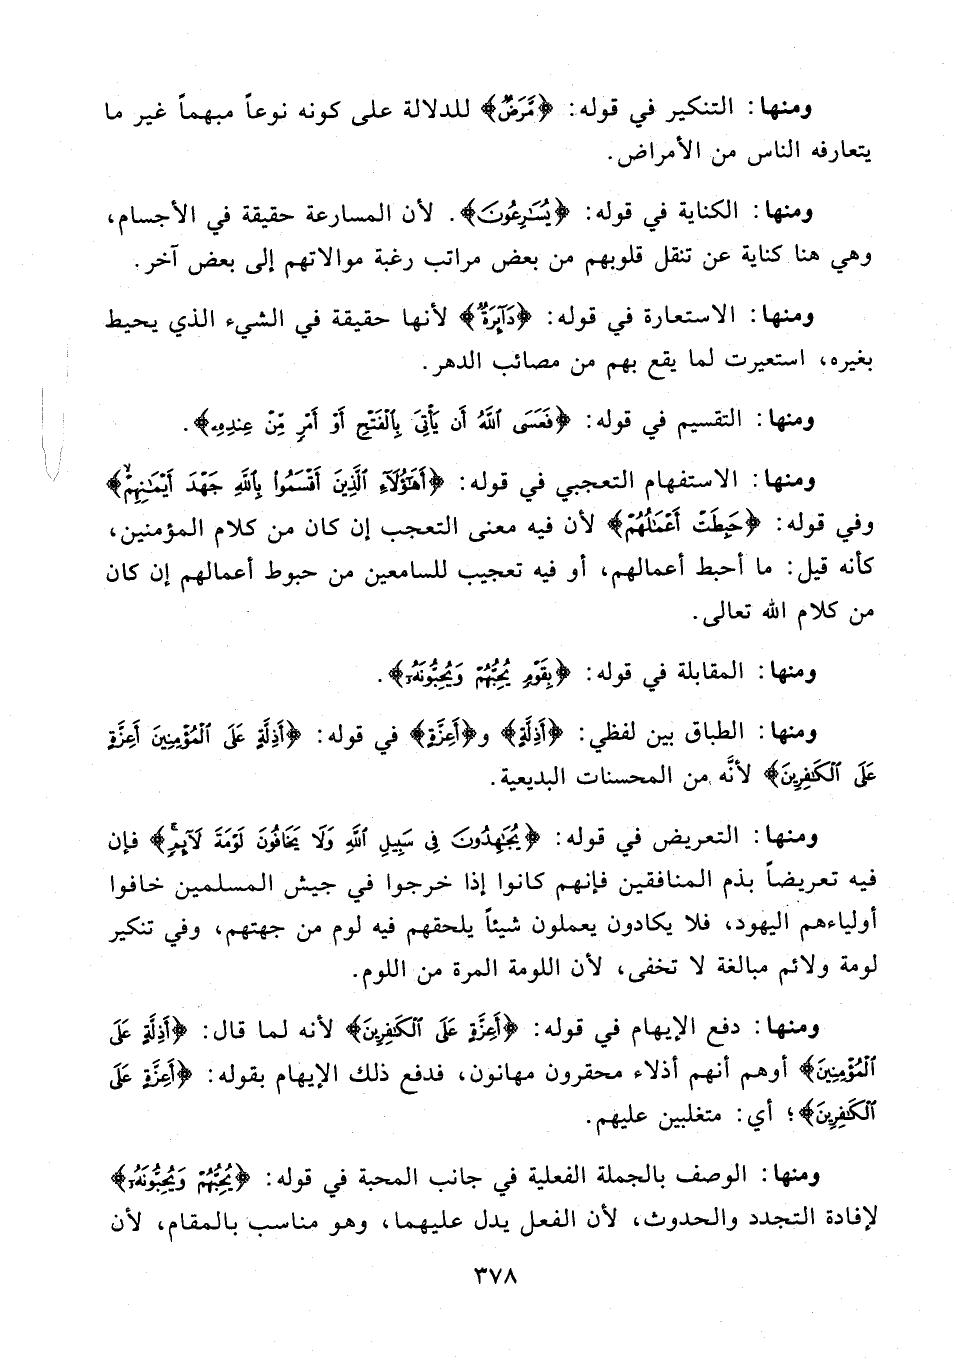 ومنها: التنكير في قوله: ﴿مَّرَضٌ﴾ للدلالة على كونه نوعاً مبهماً غير ما
يتعارفه الناس من الأمراض.
ومنها: الكناية في قوله: ﴿يُسَٰرِعُونَ﴾. لأن المسارعة حقيقة في الأجسام،
وهي هنا كناية عن تنقل قلوبهم من بعض مراتب رغبة موالاتهم إلى بعض آخر.
ومنها: الاستعارة في قوله: ﴿دَآئِرَةٌ﴾ لأنها حقيقة في الشيء الذي يحيط
بغيره، استعيرت لما يقع بهم من مصائب الدهر.
ومنها: التقسيم في قوله: ﴿فَعَسَى ٱللَّهُ أَن يَأْتِىَ بِٱلْفَتْحِ أَوْ أَمْرٍ مِّنْ عِندِهِۦ﴾.
ومنها: الاستفهام التعجبي في قوله: ﴿أَهَٰٓؤُلَآءِ ٱلَّذِينَ أَقْسَمُوا۟ بِٱللَّهِ جَهْدَ أَيْمَٰنِهِمْ ۙ﴾
وفي قوله: ﴿حَبِطَتْ أَعْمَٰلُهُمْ﴾ لأن فيه معنى التعجب إن كان من كلام المؤمنين،
كأنه قيل: ما أحبط أعمالهم، أو فيه تعجيب للسامعين من حبوط أعمالهم إن كان
من كلام الله تعالى.
ومنها: المقابلة في قوله: ﴿بِقَوْمٍ يُحِبُّهُمْ وَيُحِبُّونَهُۥٓ﴾.
ومنها: الطباق بين لفظي: ﴿أَذِلَّةٍ﴾ و﴿أَعِزَّةٍ﴾ في قوله: ﴿أَذِلَّةٍ عَلَى ٱلْمُؤْمِنِينَ أَعِزَّةٍ
عَلَى ٱلْكَٰفِرِينَ﴾ لأنَّه من المحسنات البديعية.
ومنها: التعريض في قوله: ﴿يُجَٰهِدُونَ فِى سَبِيلِ ٱللَّهِ وَلَا يَخَافُونَ لَوْمَةَ لَآئِمٍ ۚ﴾ فإن
فيه تعريضاً بذم المنافقين فإنهم كانوا إذا خرجوا في جيش المسلمين خافوا
أولياءهم اليهود، فلا يكادون يعملون شيئاً يلحقهم فيه لوم من جهتهم، وفي تنكير
لومة ولائم مبالغة لا تخفى، لأن اللومة المرة من اللوم.
ومنها: دفع الإيهام في قوله: ﴿أَعِزَّةٍ عَلَى ٱلْكَٰفِرِينَ﴾ لأنه لما قال: ﴿أَذِلَّةٍ عَلَى
ٱلْمُؤْمِنِينَ﴾ أوهم أنهم أذلاء محقرون مهانون، فدفع ذلك الإيهام بقوله: ﴿أَعِزَّةٍ عَلَى
ٱلْكَٰفِرِينَ﴾؛ أي: متغلبين عليهم.
ومنها: الوصف بالجملة الفعلية في جانب المحبة في قوله: ﴿يُحِبُّهُمْ وَيُحِبُّونَهُۥٓ﴾
لإفادة التجدد والحدوث، لأن الفعل يدل عليهما، وهو مناسب بالمقام، لأن
٣٧٨